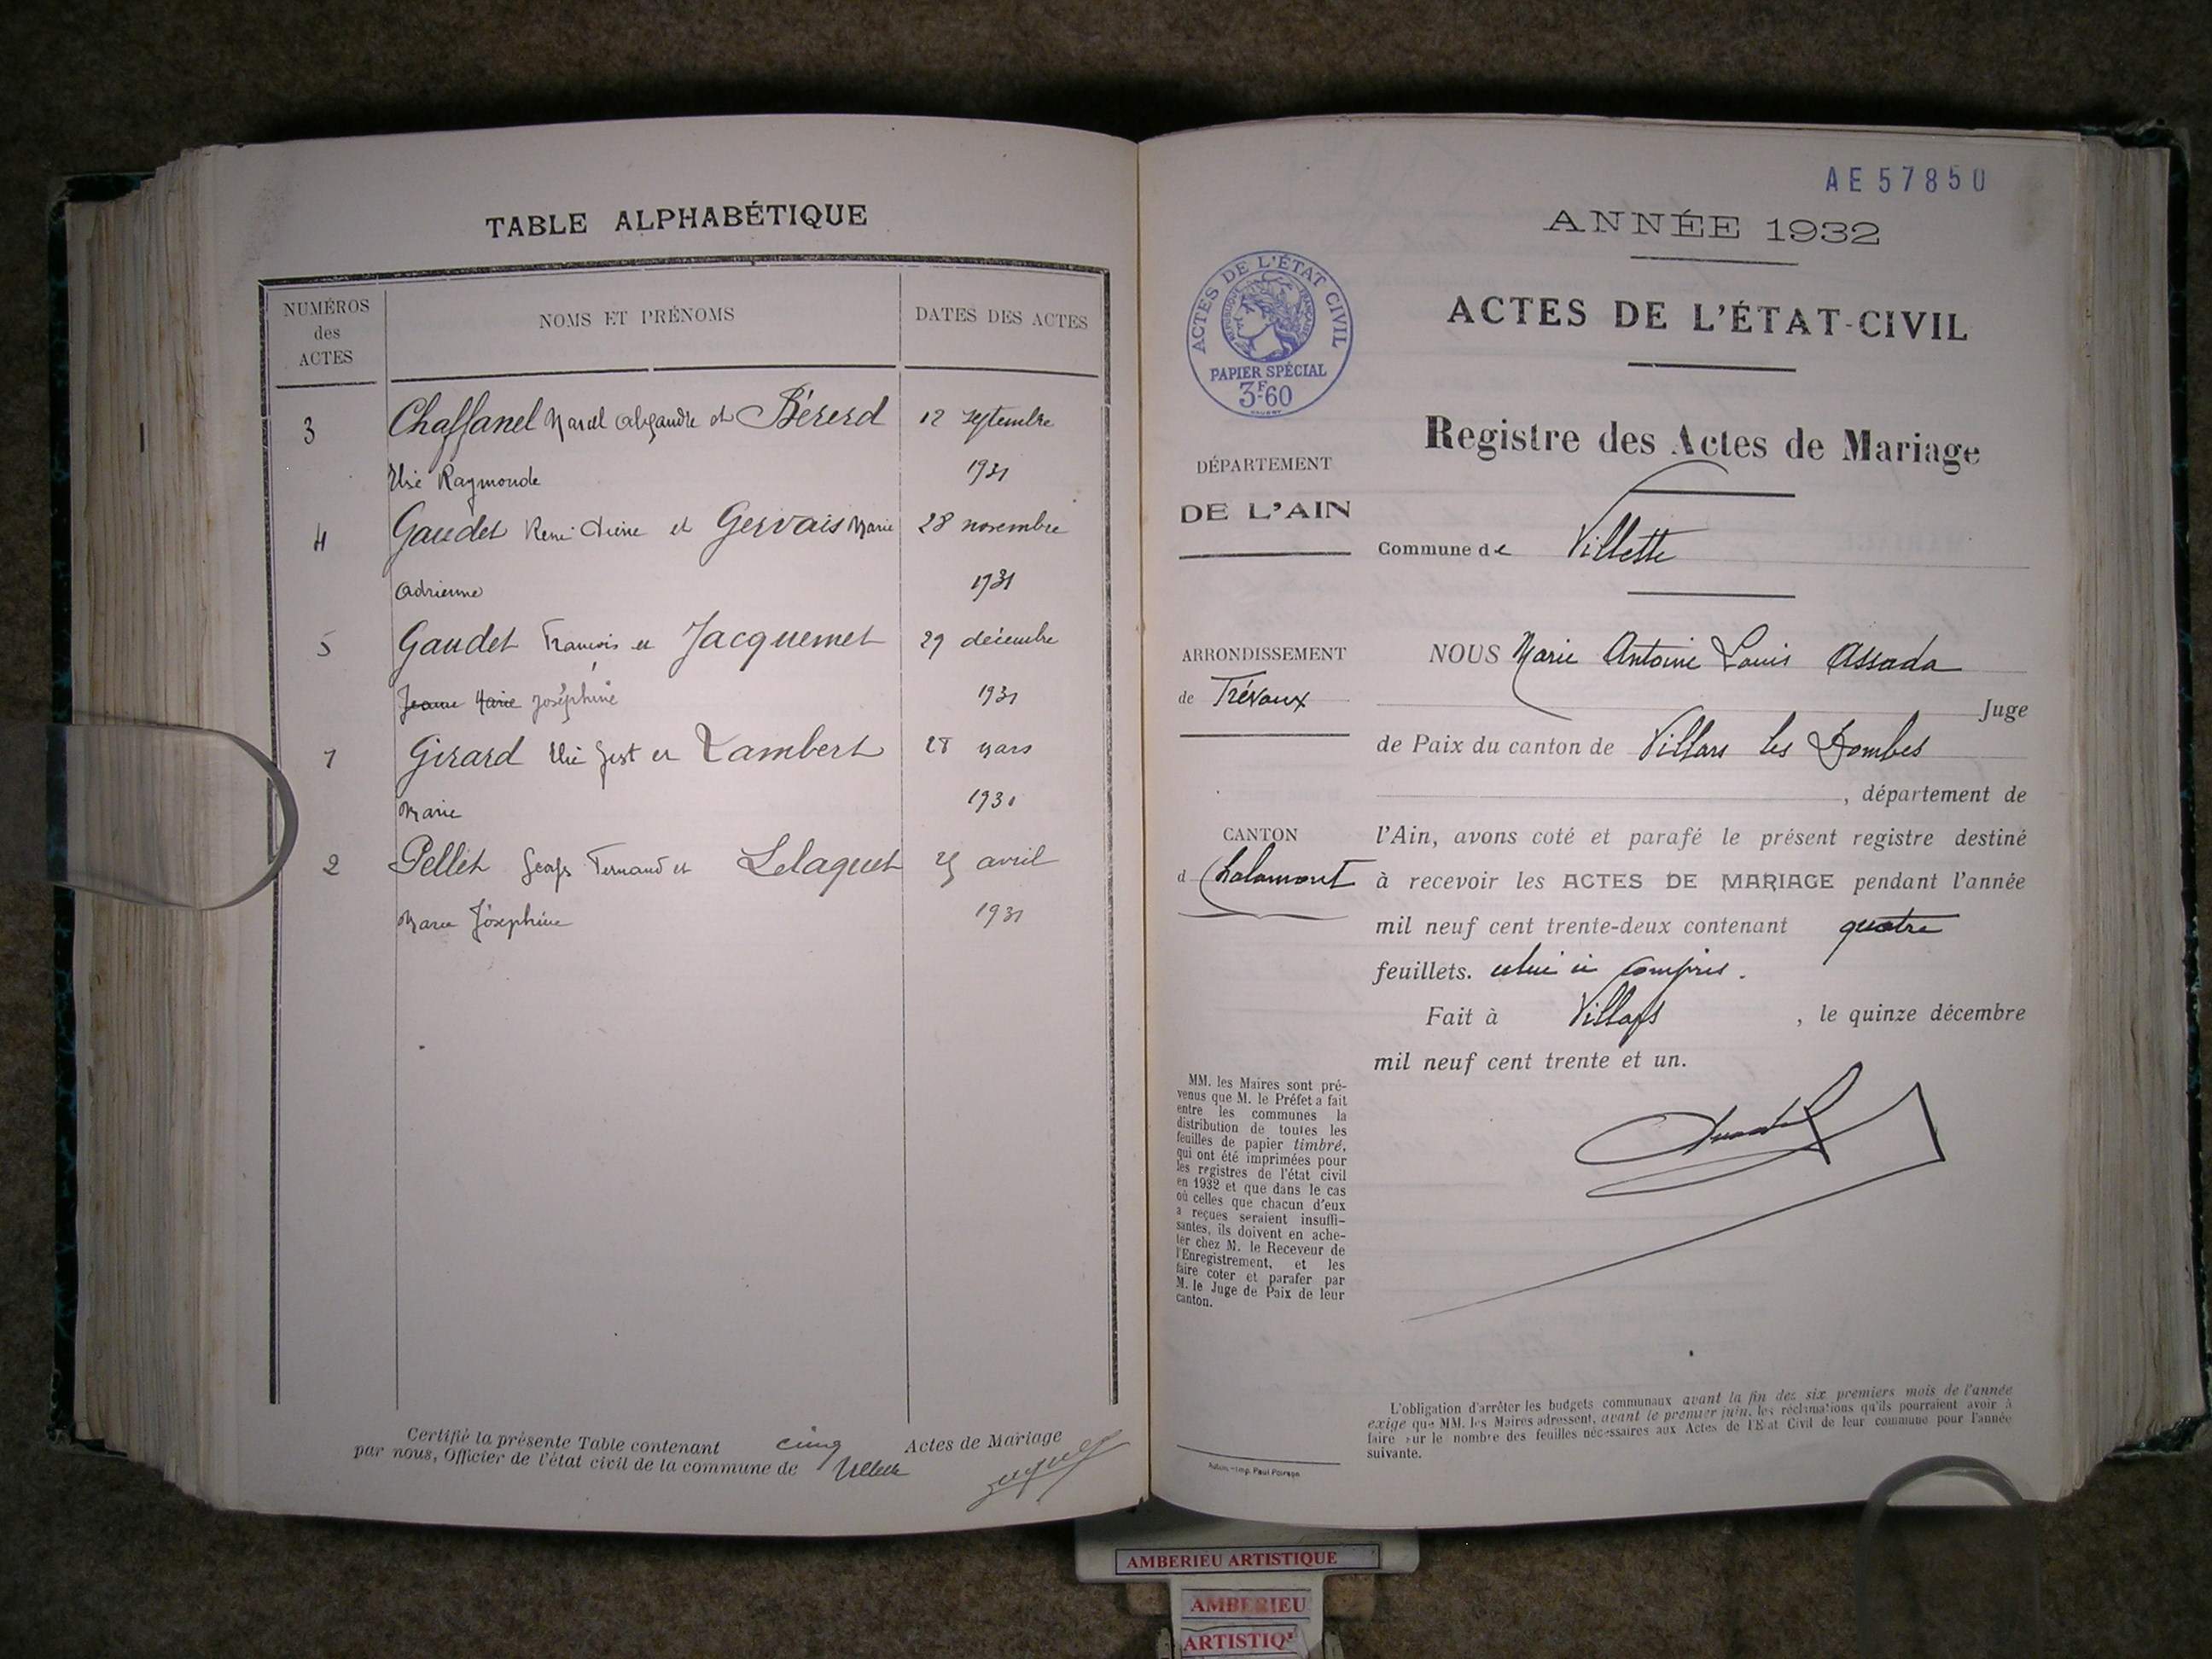 TABLE ALPHABÉTIQUE
NUMÉROS
des
ACTES
NOMS ET PRÉNOMS
DATES DES ACTES
3 Chaffanel Marcel Alexandre et Bérerd 12 septembre
Raymonde 1931
4 Gaudet René et Gervais Marie 28 novembre
Adrienne 1931
5 Gaudet François et Jacquemet 29 décembre
Jeanne Marie Joséphine 1931
1 Girard et Lambert 28 Mars
Marie 1931
2 Pellet Fernand et Lelaquet 25 avril
Marie Joséphine 1931
Certifié la présente Table contenant cinq Actes de Mariage
par nous, Officier de l'état civil de la commune de Villette
AE57850
ANNÉE 1932
ACTES DE L'ÉTAT CIVIL
RÉPUBLIQUE FRANÇAISE
PAPIER SPÉCIAL
3F60
ACTES DE L'ÉTAT-CIVIL
Registre des Actes de Mariage
DÉPARTEMENT
DE L'AIN
Commune de Villette
ARRONDISSEMENT
de Trévoux
NOUS Marie Antoine Louis Assada
Juge
de Paix du canton de Villars les Dombes
, département de
CANTON
d Chalamont
l'Ain, avons coté et parafé le présent registre destiné
à recevoir les ACTES DE MARIAGE pendant l'année
mil neuf cent trente-deux contenant quatre
feuillets. celui ci compris.
Fait à Villars , le quinze décembre
mil neuf cent trente et un.
MM. les Maires sont pré-
venus que M. le Préfet a fait
entre les communes la
distribution de toutes les
feuilles de papier timbré,
qui ont été imprimées pour
les registres de l'état civil
en 1932 et que dans le cas
où celles que chacun d'eux
a reçues seraient insuffi-
santes, ils doivent en ache-
ter chez M. le Receveur de
l'Enregistrement, et les
faire coter et parafer par
M. le Juge de Paix de leur
canton.
L'obligation d'arrêter les budgets communaux avant la fin des six premiers mois de l'année
exige que MM. les Maires adressent, avant le premier juin, les réclamations qu'ils pourraient avoir à
faire sur le nombre des feuilles nécessaires aux Actes de l'Etat Civil de leur commune pour l'année
suivante.
Imp. Paul Poirson
AMBERIEU ARTISTIQUE
AMBERIEU
ARTISTIQ